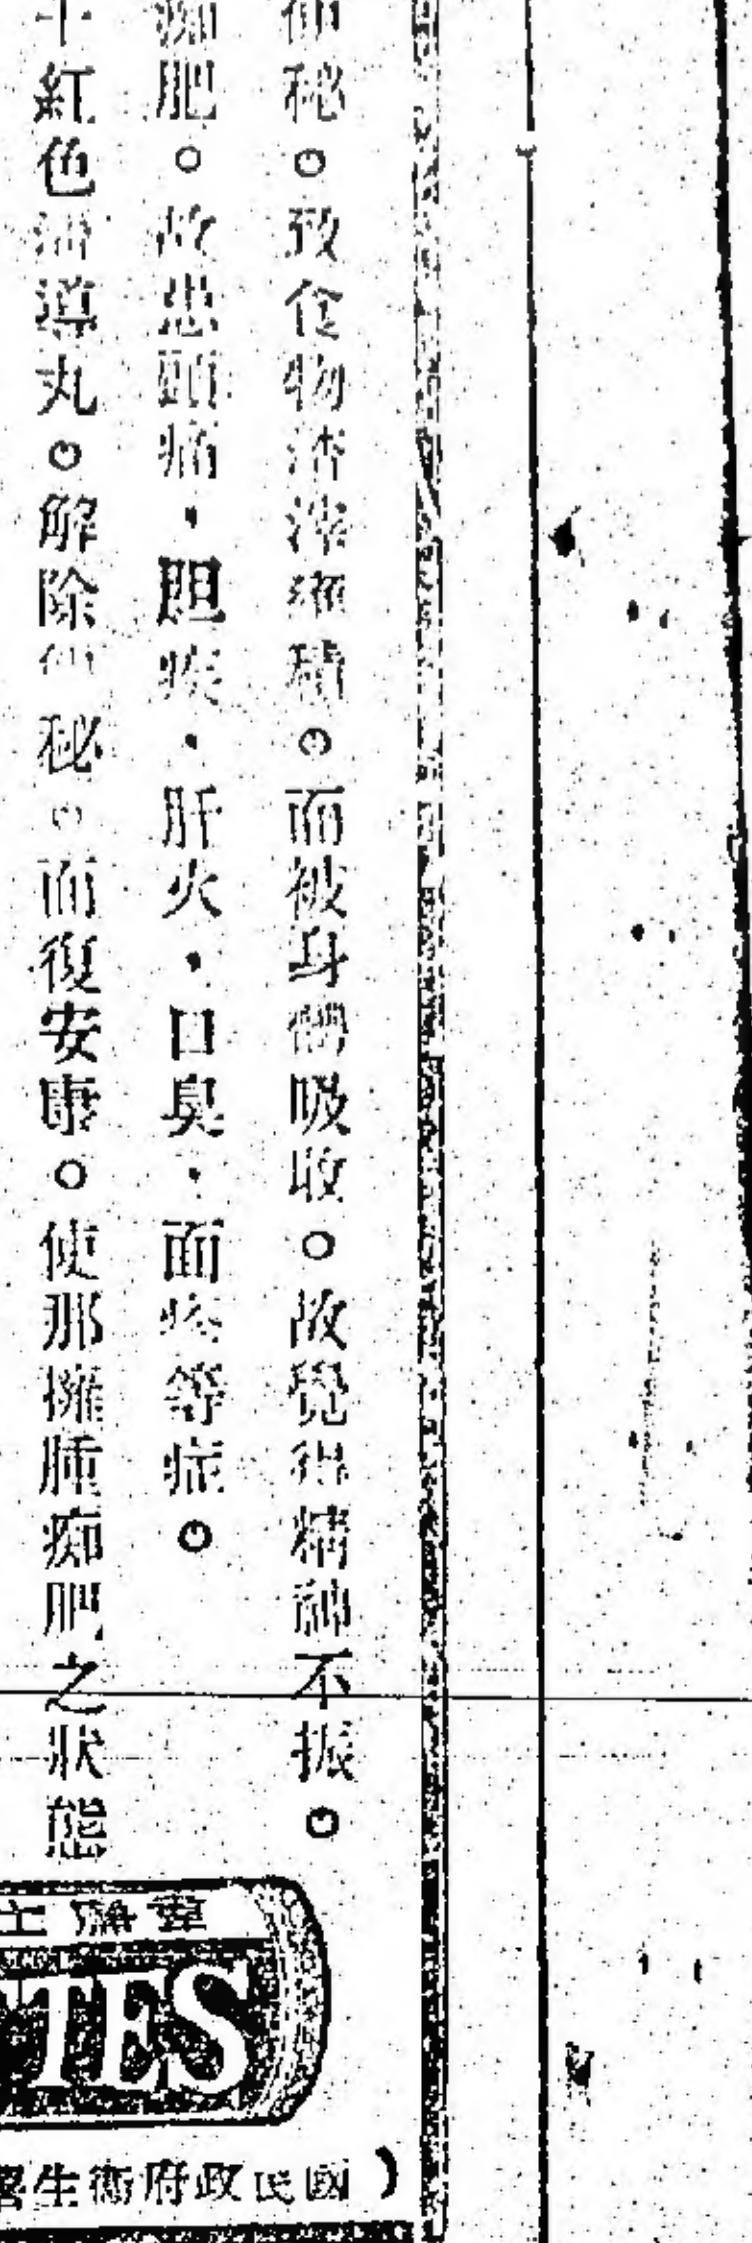 秘。致食物渣滓堆積。而被身體吸收。故覺得精神不振。
痴肥。故患頭痛・胆疾・肝火・口臭・面疼等症。
士紅色清導丸。解除便秘。而復安康。使那擁腫痴肥之狀態
韋廉士
TES
(國民政府衛生署